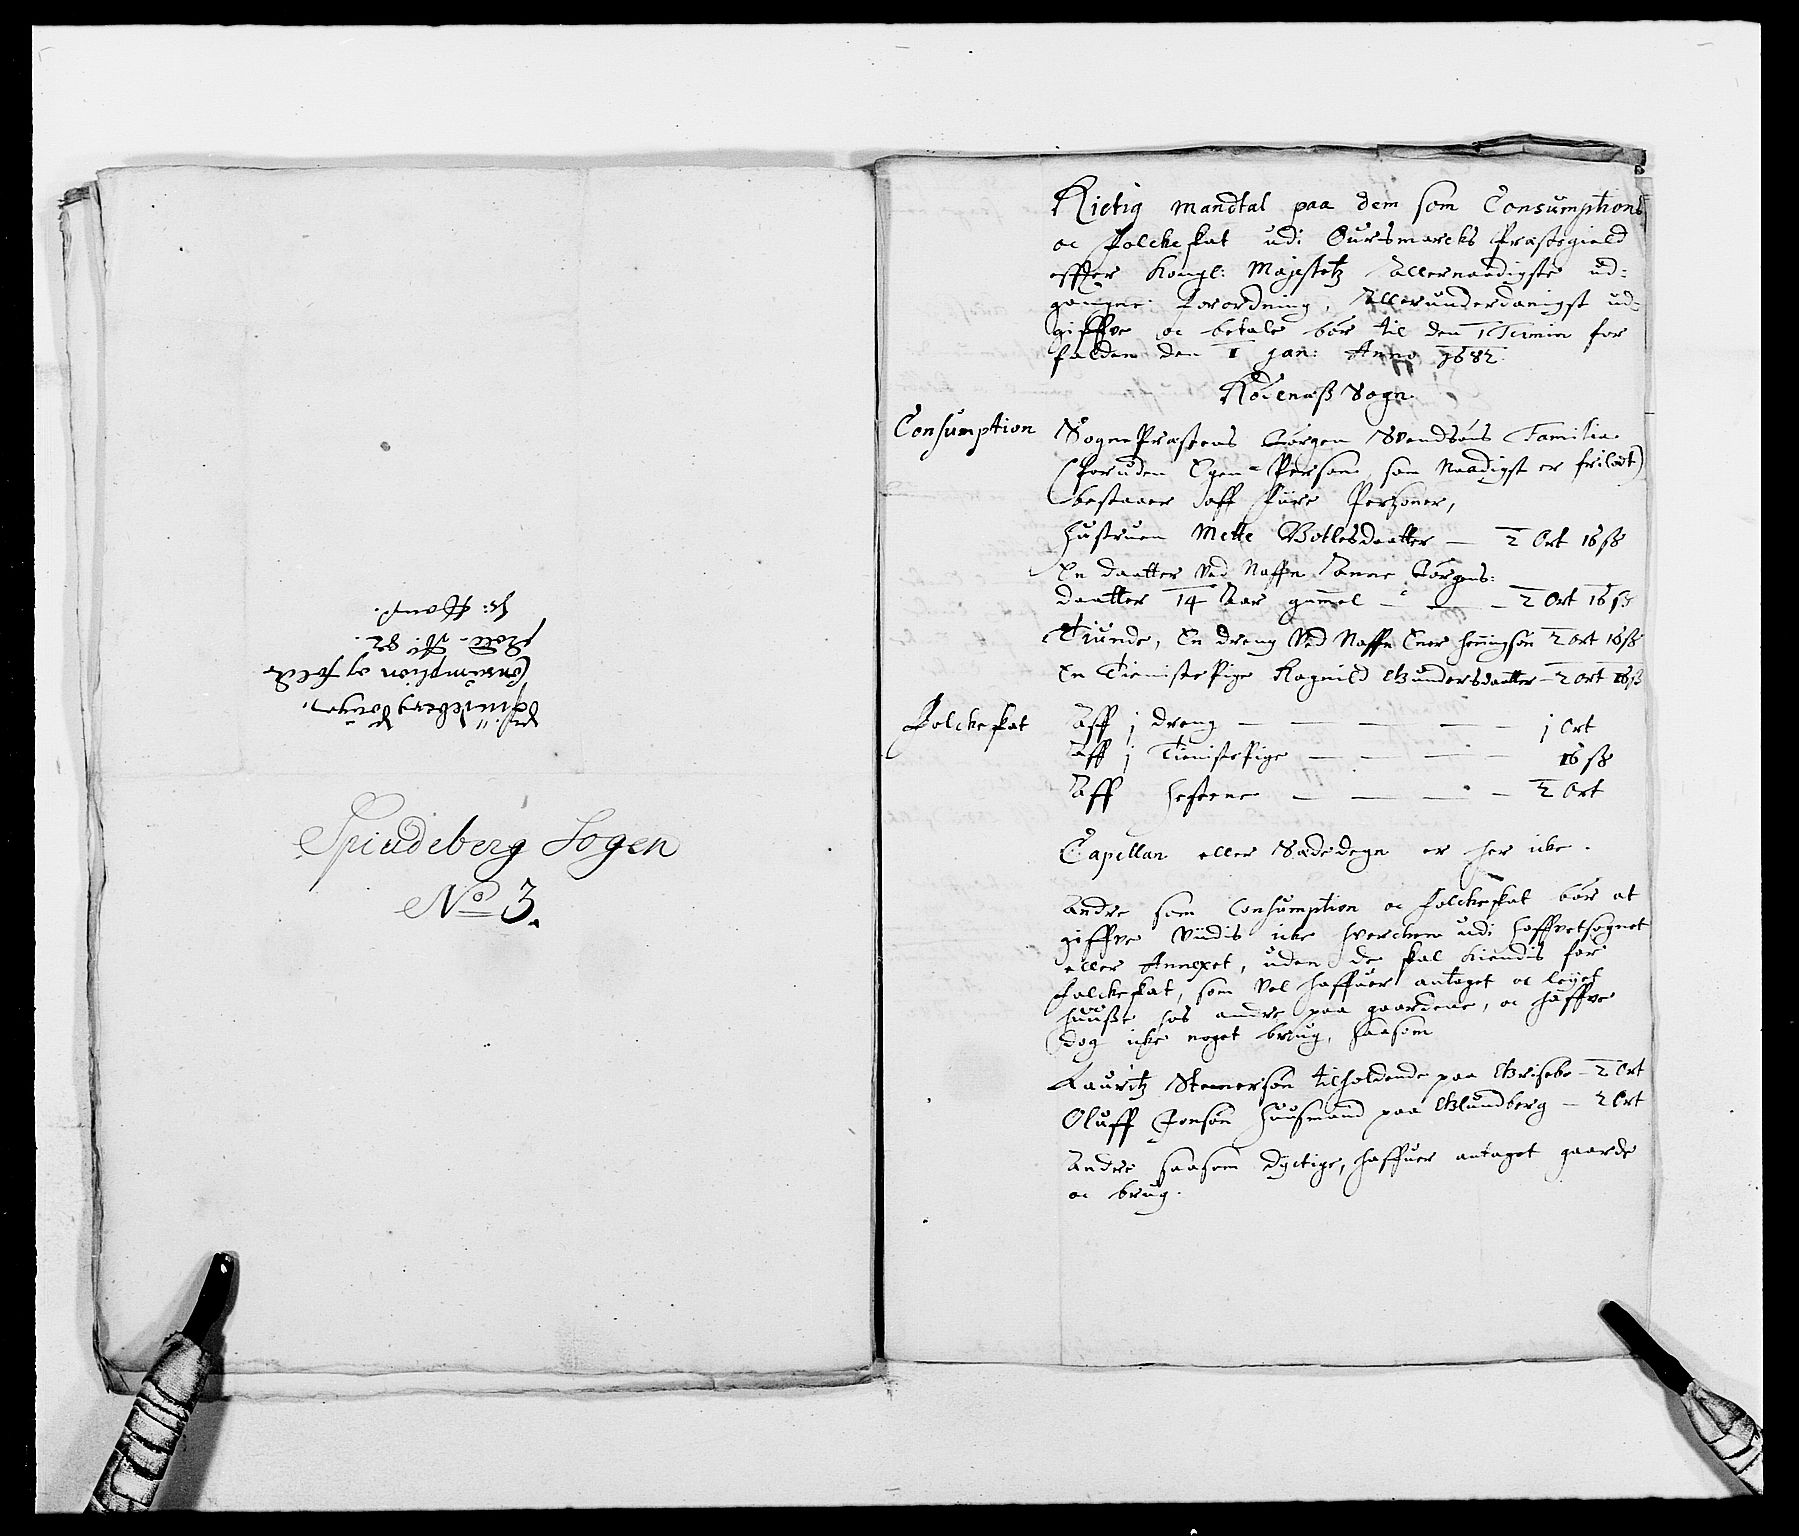 Spindeberg Sogen
No 3.
Spindeberg Sougen
Consumption og folde
skatt A: 82
Rictig mandtal paa dem som Consumptions
oc Folckeskat udi Oursmarcks Præstegield
effter Kongl: Majestetz Allernaadigste ud-
gangne forordning, Allerunderdanigst ud-
giffve oc betale bør til den 1 Termin for
falden den 1 Jan: Anno 1682.
Rødenæß Sogn.
Consumption
SognePræstens Jørgen Svendsøns Familia
(Foruden Egen Person, som Naadigst er frilodt)
bestaaer aff fiire Personer,
Hustruen Mette Bottesdaatter — 2 Ort 16 sß
En daatter ved Naffn Anne Jørgens:
daatter 14 Aar gammel — 2 Ort 16 sß
Tiunde, En dreng Ved Naffn Iver Heningsøn 2 Ort 16 sß
En TienistePige Ragnild Gundersdaatter — 2 Ort 16 sß
Folckeskat
Aff j dreng — — — — — j Ort
Aff j TienistePige — — — — 16 sß
Aff Hestene — — — — 2 Ort
Capellan eller Sædedegn er her icke.
Andre som Consumption oc Folckeskat bør at
giffve viidis icke hvercken udi Hoffvetsognet
eller Annexet, uden de skal kiendis for
Folckeskat, som vel haffuer antaget oc leyet
huuße hos andre paa gaardene, oc haffve
dog icke noget brug, saasom
Lauritz Stenersøn tilholdende paa Griseboe — 2 Ort
Oluff Jonsøn Huusmand paa Glundberg — 2 Ort
Andre saasom dyctige, haffuer antaget gaarde
oc brug.